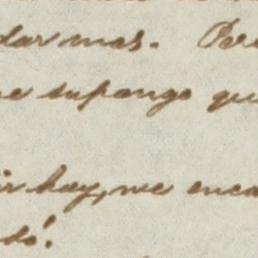 dar mas. Per
me supongo qu
ir hay, me enca
dó!